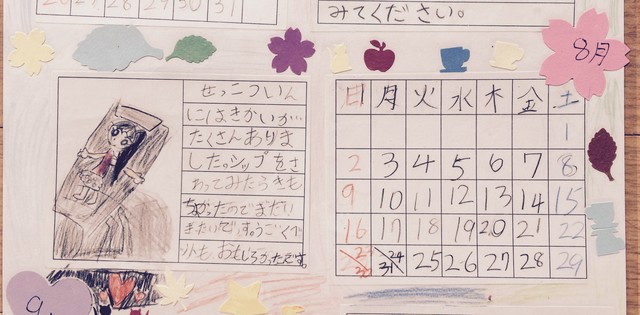 26 27 28 29 30 31
みてください。
8月
せっこついん
にはきかいが
たくさんありま
した。シップをさ
わってみたらきも
ちよかったのでまたい
きたいです。すうごくて
おもしろかったです。
日 月 火 水 木 金 土
1
2 3 4 5 6 7 8
9 10 11 12 13 14 15
16 17 18 19 20 21 22
23 30 24 31 25 26 27 28 29
9